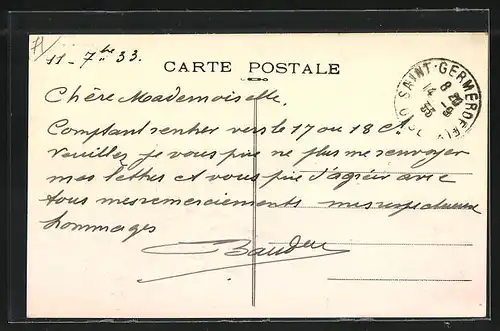 11 - 7bre 33.
CARTE POSTALE
SAINT-GERMER-DE-FLY OISE
8 20
14 - 9
33
Chère Mademoiselle,
Comptant rentrer vers le 17 ou 18 ct
Veuillez je vous prie ne plus me renvoyer
mes lettres et vous prie d'agréer avec
tous mes remerciements mes respectueux
hommages